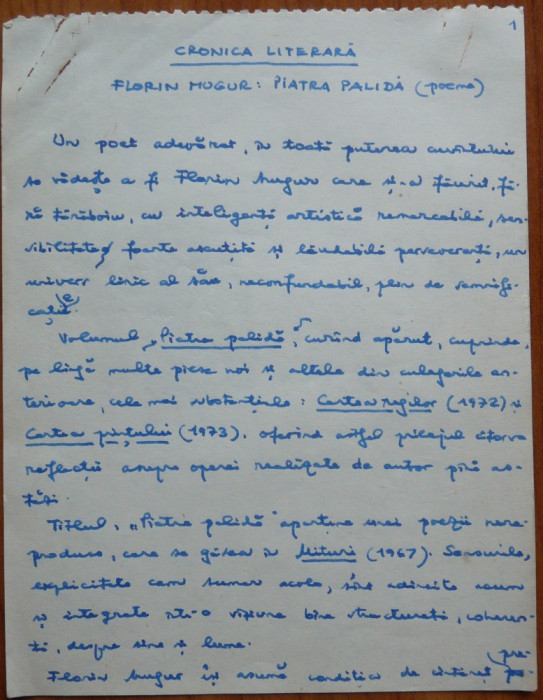 1
CRONICA LITERARĂ
FLORIN MUGUR: PIATRA PALIDĂ (-poeme)
Un poet adevărat, în toată puterea cuvîntului
se vădește a fi Florin Mugur care și-a făurit, fă-
ră tărăboiu, cu inteligență artistică remarcabilă, sen-
sibilitate foarte ascuțită și lăudabilă perseverență, un
univers liric al său, neconfundabil, plin de semnifi-
cație.
Volumul „Piatra palidă”, curînd apărut, cuprinde,
pe lîngă multe piese noi și altele din culegerile an-
terioare, cele mai substanțiale: Cartea regilor (1972) și
Cartea prințului (1973), oferind astfel prilejul cîtorva
reflecții asupra operei realizate de autor pînă as-
tăzi.
Titlul, „Piatra palidă” aparține unei poezii nere-
produse, care se găsea în Mituri (1967). Sensurile,
explicitate cam sumar acolo, sînt adîncite acum
și integrate într-o viziune bine structurată, coheren-
tă, despre sine și lume.
Florin Mugur își asumă condiția de cîntăreț pre-